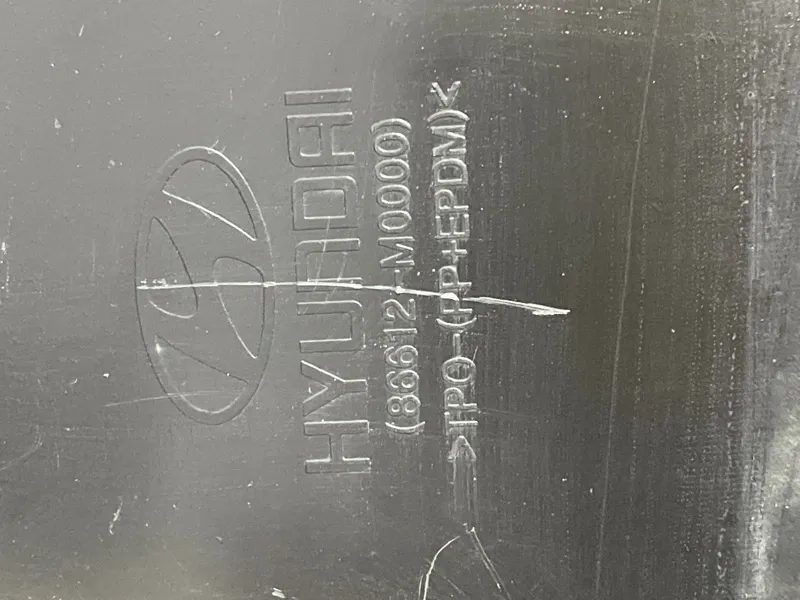 HYUNDAI
(86612-M0000)
>TPO-(PP+EPDM)<